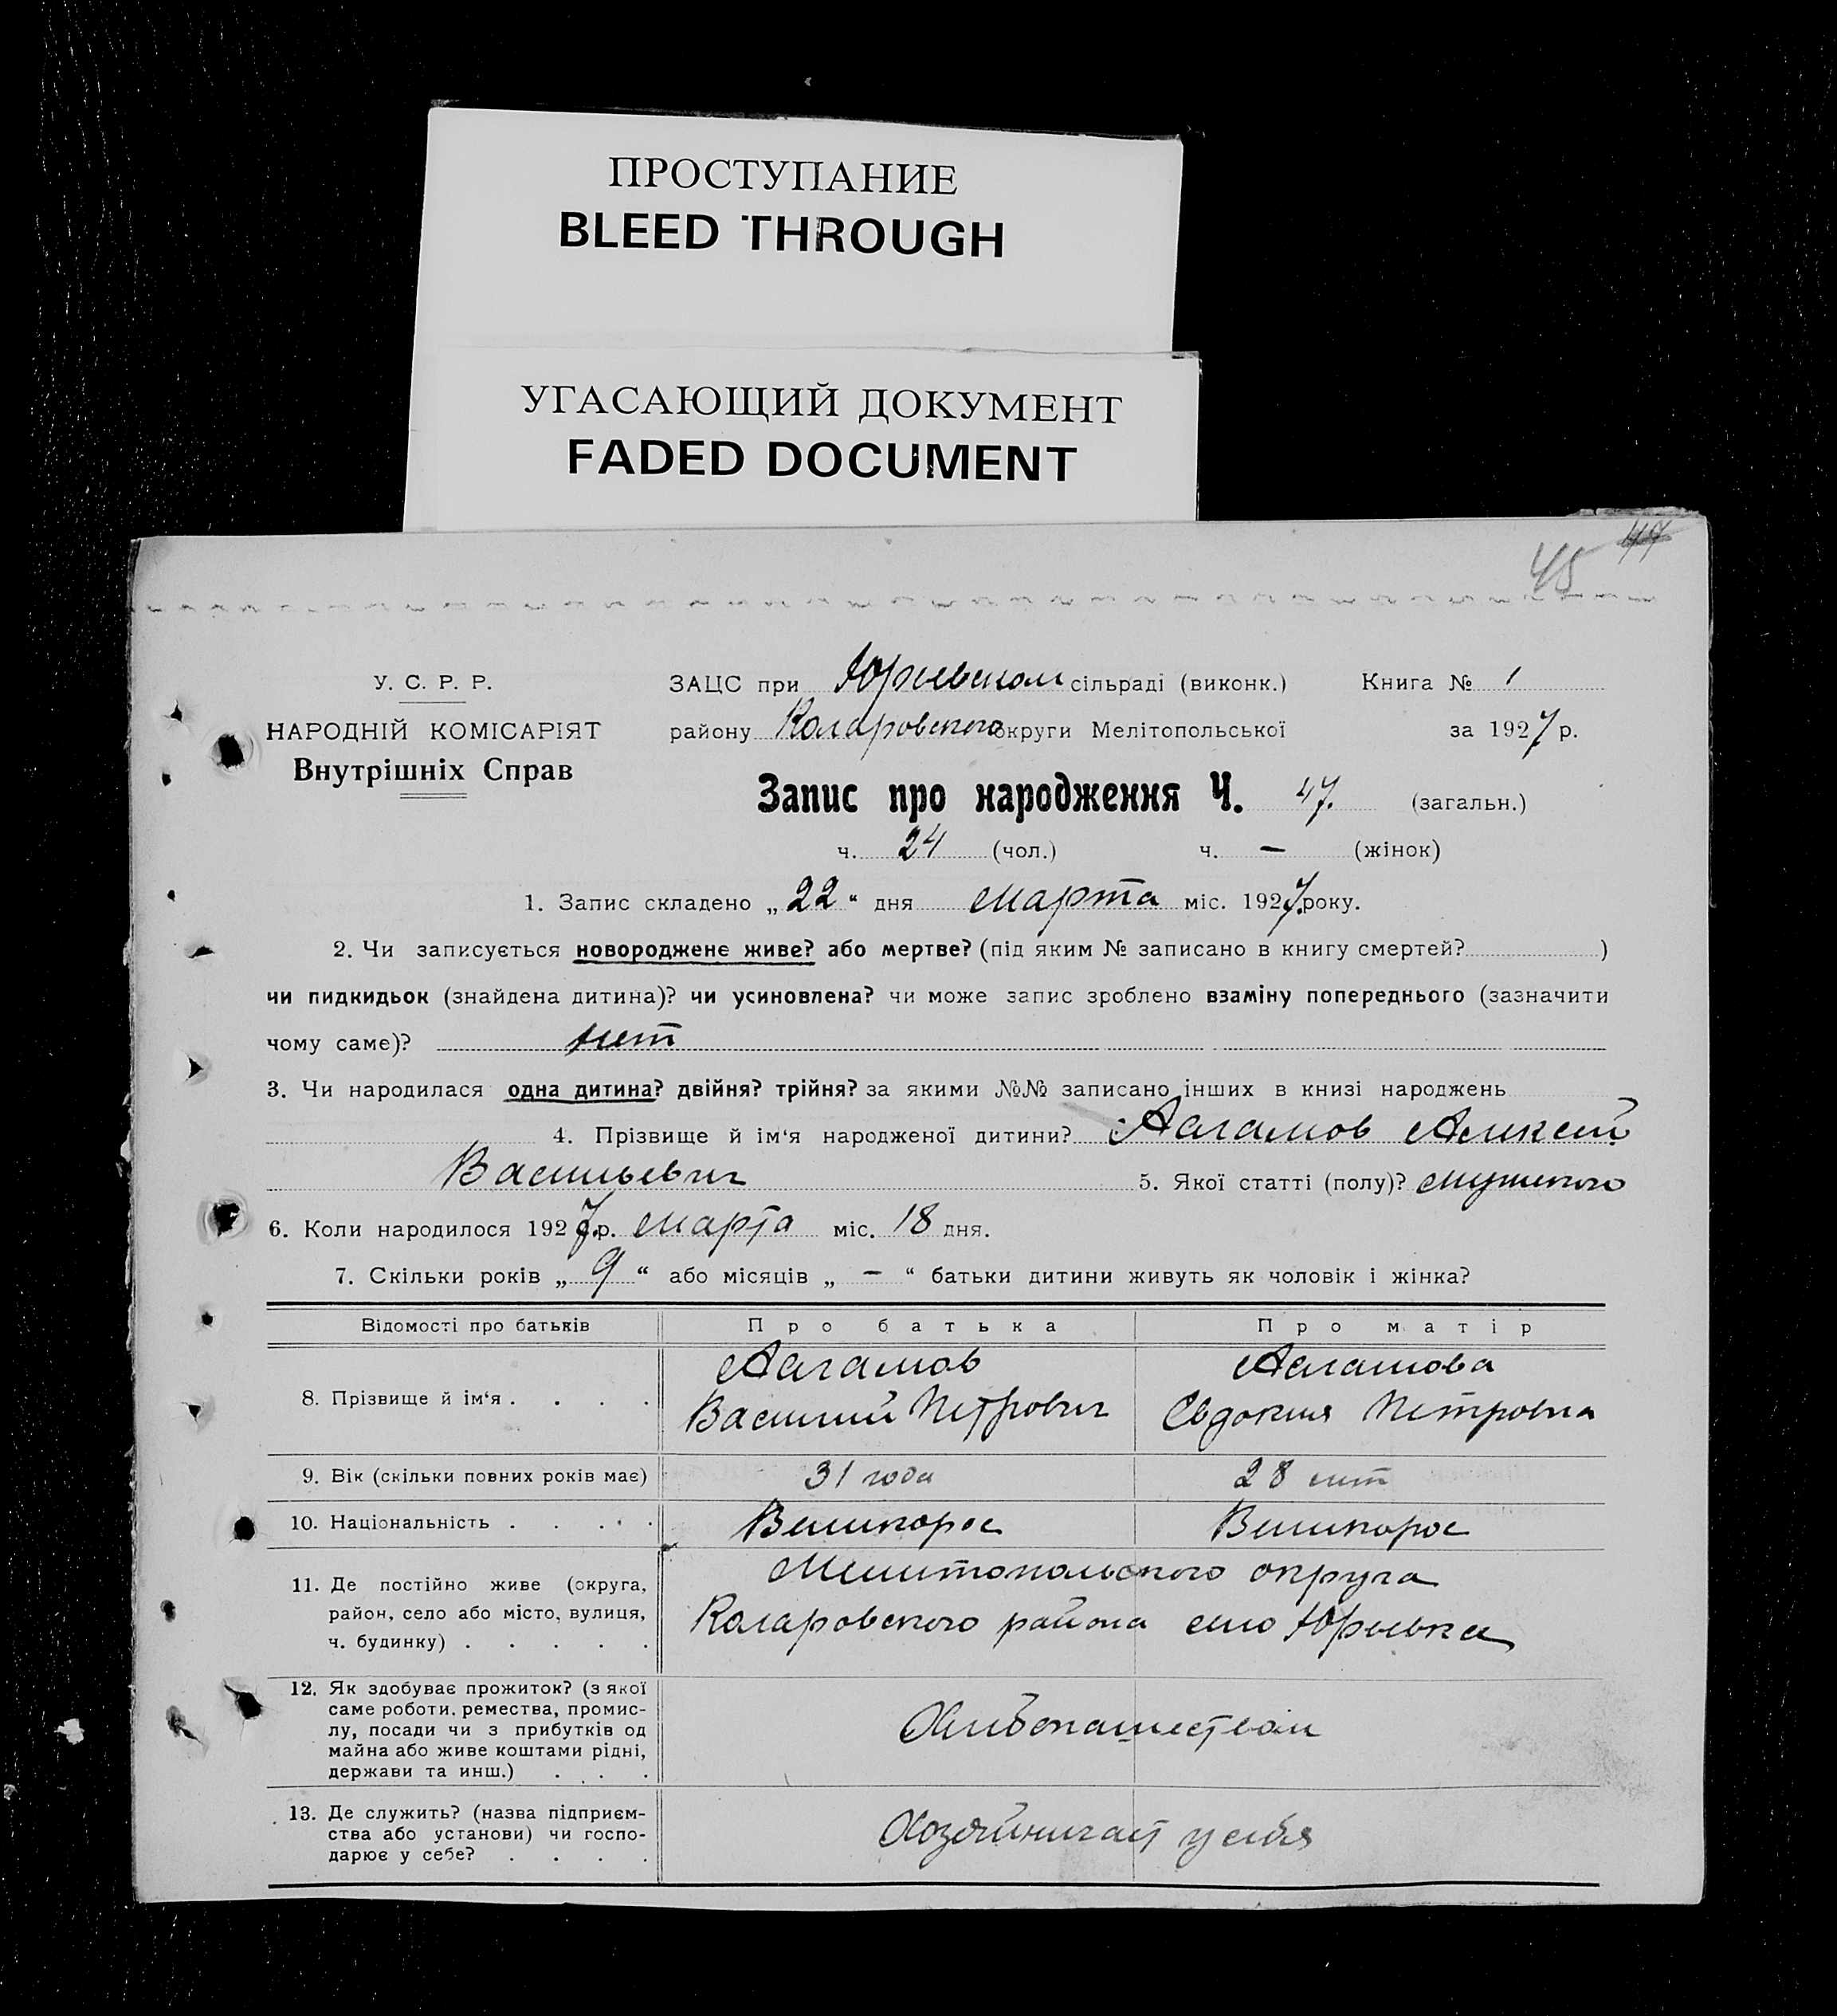 ПРОСТУПАНИЕ
BLEED THROUGH
УГАСАЮЩИЙ ДОКУМЕНТ
FADED DOCUMENT
45 47
У. С. Р. Р. ЗАЦС при Юрьевском сільраді (виконк.) Книга № 1
НАРОДНІЙ КОМІСАРІЯТ району Коларовского округи Мелітопольської за 1927 р.
Внутрішніх Справ
Запис про народження Ч. 47. (загальн.)
ч. 24 (чол.) ч. — (жінок)
1. Запис складено „22“ дня марта міс. 1927 року.
2. Чи записується новороджене живе? або мертве? (під яким № записано в книгу смертей? )
чи пидкидьок (знайдена дитина)? чи усиновлена? чи може запис зроблено взаміну попереднього (зазначити
чому саме)? нет
3. Чи народилася одна дитина? двійня? трійня? за якими №№ записано інших в книзі народжень
4. Прізвище й ім‘я народженої дитини? Алексей
Васильевич 5. Якої статті (полу)? мужского
6. Коли народилося 1927 р. марта міс. 18 дня.
7. Скільки років „9“ або місяців „–“ батьки дитини живуть як чоловік і жінка?
Відомості про батьків Про батька Про матір
8. Прізвище й ім‘я . . . .
Василий Петрович Евдокия Петровна
9. Вік (скільки повних років має) 31 года 28 лет
10. Національність . . . . . Великорос Великорос
11. Де постійно живе (округа, Мелитопольского округа
район, село або місто, вулиця, Коларовского района село Юрьевка
ч. будинку) . . . . .
12. Як здобуває прожиток? (з якої
саме роботи. ремества, промис-
лу, посади чи з прибутків од Хлебопашеством
майна або живе коштами рідні,
держави та инш.) . . .
13. Де служить? (назва підприєм-
ства або установи) чи госпо- Хозяйничает у себя
дарює у себе? . . . .